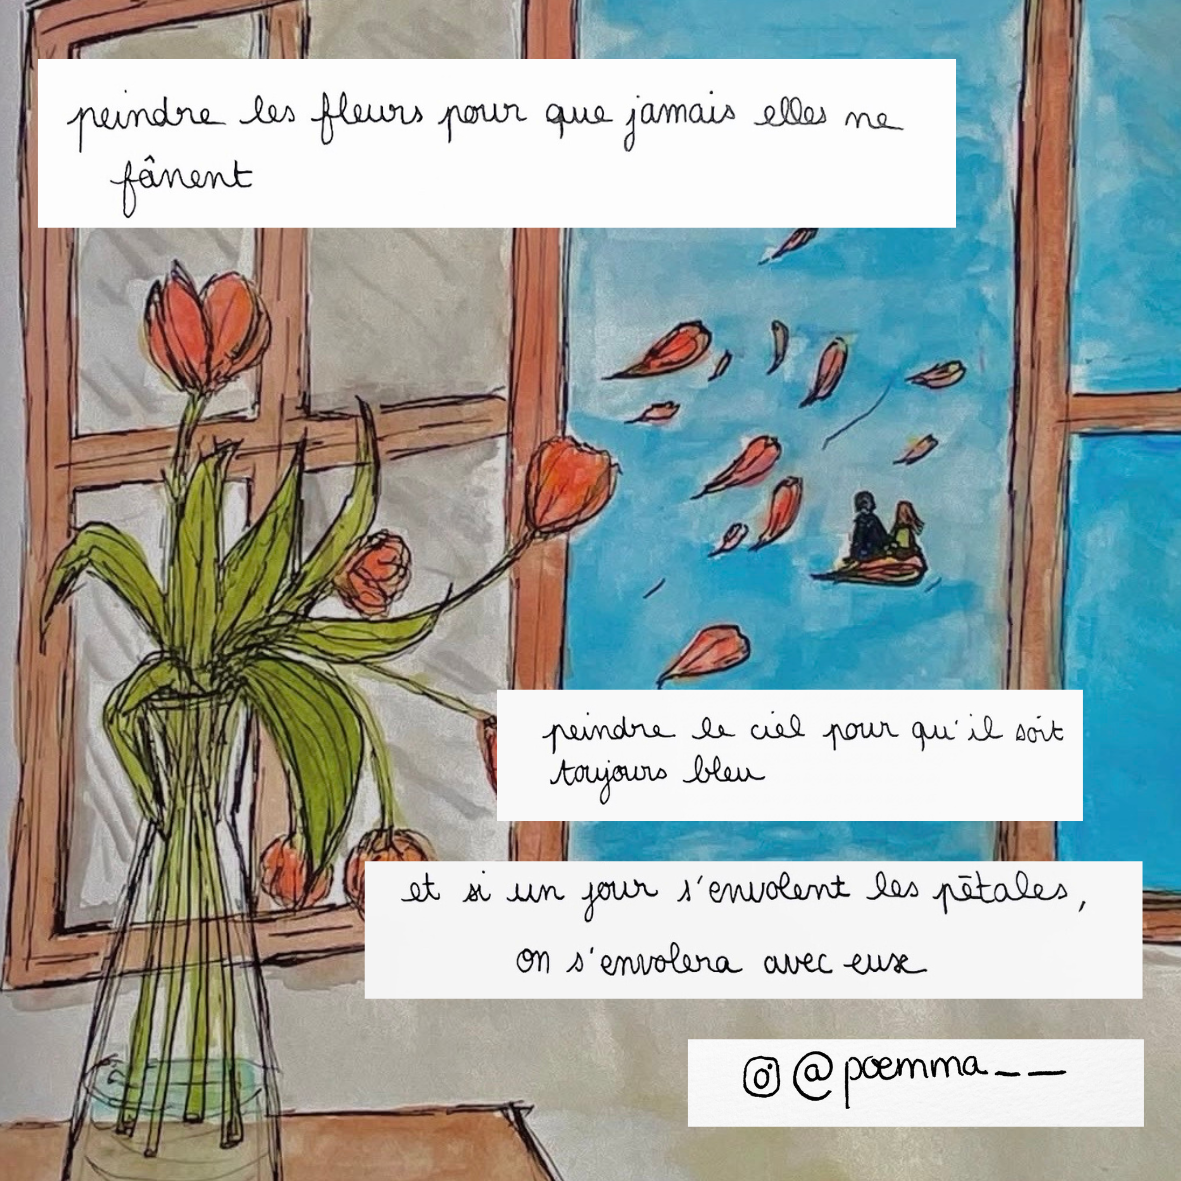 peindre les fleurs pour que jamais elles ne
fânent
peindre le ciel pour qu'il soit
toujours bleu
et si un jour s'envolent les pétales,
on s'envolera avec eux
@poemma__